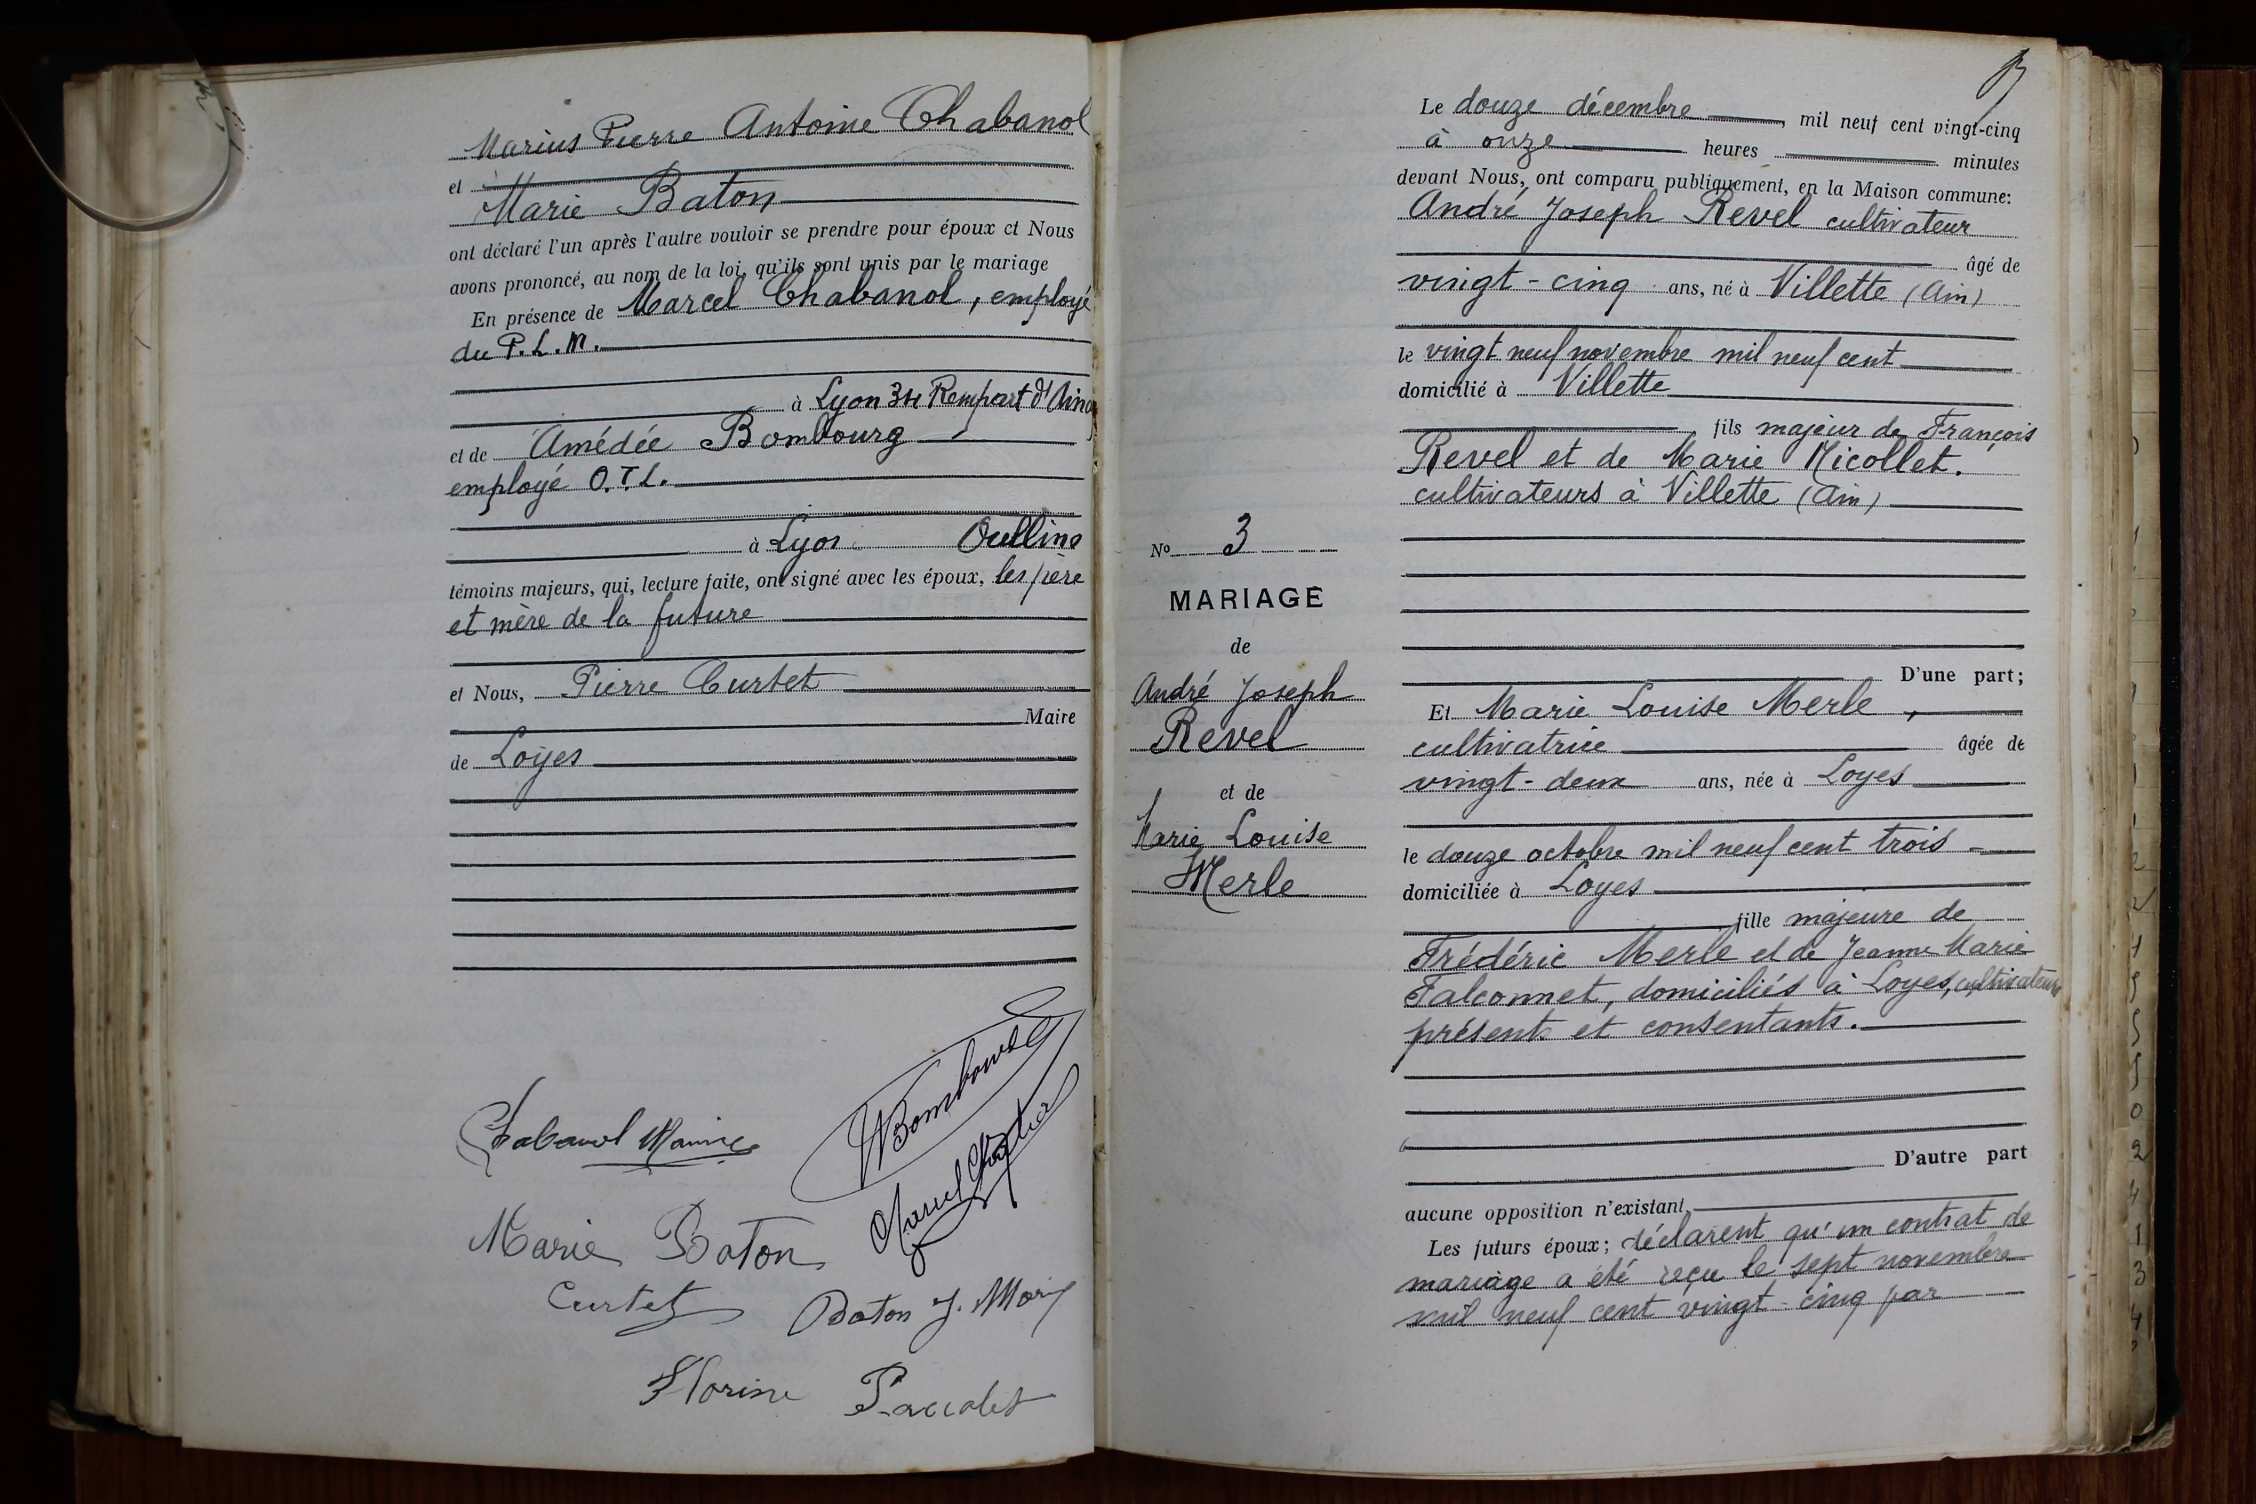 Marius Pierre Antoine Chabanol
et
Marie Baton
ont déclaré l'un après l'autre vouloir se prendre pour époux et Nous
avons prononcé, au nom de la loi, qu'ils sont unis par le mariage
En présence de Marcel Chabanol, employé
du P.L.M.
à Lyon 34 Rempart d'Ainay
et de Amédée Bombourg
employé O.T.L.
à Lyon Oullins
témoins majeurs, qui, lecture faite, ont signé avec les époux, les père
et mère de la future
et Nous, Pierre Curtet
Maire
de Loyes
Bombourg
Chabanol Marius
Marcel
Marie Baton
Curtet Baton J. Mary
Florine Paccalet
Le douze décembre, mil neuf cent vingt-cinq
à onze heures minutes
devant Nous, ont comparu publiquement, en la Maison commune:
André Joseph Revel cultivateur
âgé de
vingt-cinq ans, né à Villette (Ain)
le vingt neuf novembre mil neuf cent
domicilié à Villette
fils majeur de François
Revel et de Marie Nicollet.
cultivateurs à Villette (Ain)
No 3
MARIAGE
de
André Joseph
Revel
et de
Marie Louise
Merle
D'une part;
Et Marie Louise Merle,
cultivatrice âgée de
vingt-deux ans, née à Loyes
le douze octobre mil neuf cent trois
domiciliée à Loyes
fille majeure de
Frédéric Merle et de Jeanne Marie
Falconnet, domiciliés à Loyes, cultivateurs
présents et consentants.
D'autre part
aucune opposition n'existant,
Les futurs époux; déclarent qu'un contrat de
mariage a été reçu le sept novembre
mil neuf cent vingt-cinq par